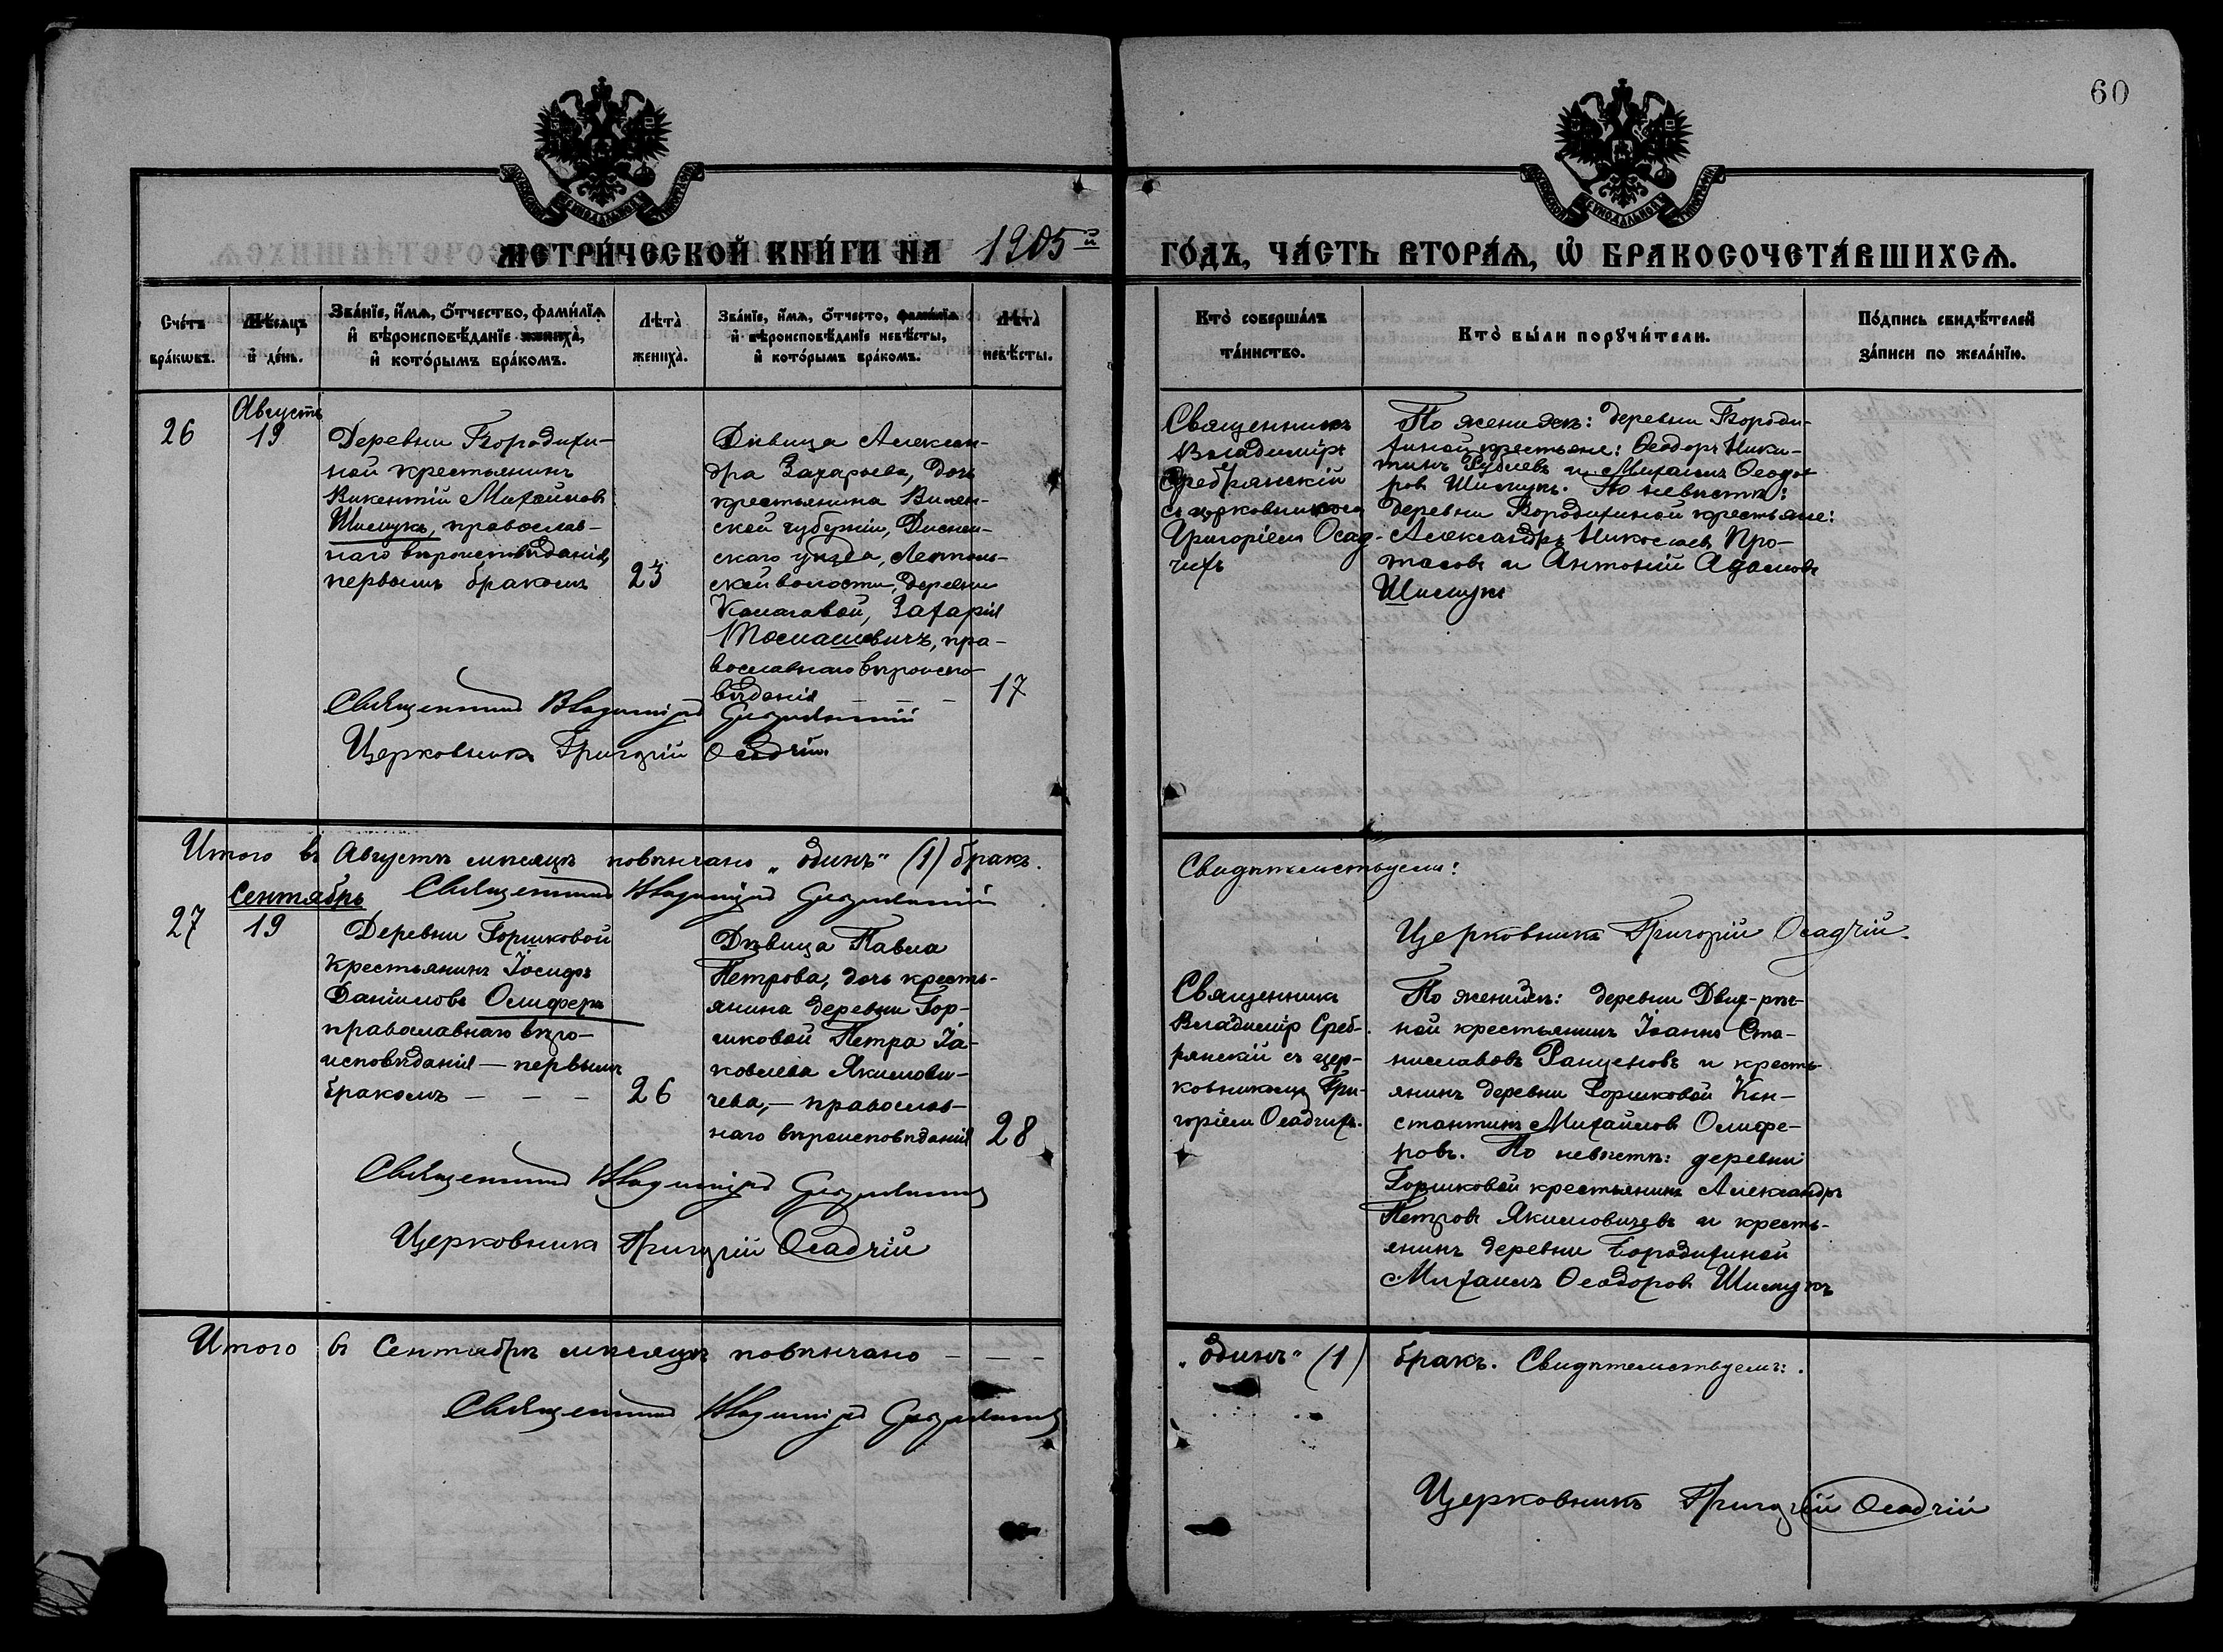 60
МЕТРИ́ЧЕСКОЙ КНИ́ГИ НА 1905й ГО́ДЪ, ЧА́СТЬ ВТОРА́Я, Ѡ БРАКОСОЧЕТА́ВШИХСЯ.
Сче́тъ бра́кѡвъ.
Мѣ́сяцъ и де́нь.
Зва́нїе, и́мя, о́тчество, фами́лїя и вѣроисповѣ́данїе жениха̀, и кото́рымъ бра́комъ.
Лѣта̀ жениха̀.
Зва́нїе, и́мя, о́тчесто, фами́лїя и вѣроисповѣ́данїе невѣ́сты, и кото́рымъ бра́комъ.
Лѣта̀ невѣ́сты.
Кто̀ соверша́лъ та́инство.
Кто̀ бы́ли порꙋчи́тели.
По́дпись свидѣ́телей за́писи по жела́нїю.
26
Августъ
19
Деревни Бородихи-
ной крестьянинъ
Викентій Михайловъ
Шимукъ, православ-
наго вѣроисповѣданія,
первымъ бракомъ
23
Дѣвица Алексан-
дра Захарьева, дочь
крестьянина Вилен-
ской губерніи, Диснен-
скаго уѣзда,
ской волости, деревни
Захарія
Томашевичъ, пра-
вославнаго вѣроиспо-
вѣданія — — —
17
Священникъ Владиміръ Сребрянскій
Церковникъ Григорій Осадчій
Священникъ
Владиміръ
Сребрянскій
съ церковникомъ
Григоріемъ Осад-
чихъ
По женихѣ: деревни Бороди-
хиной крестьяне: Ѳеодоръ Ники-
тинъ и Михаилъ Ѳеодо-
ровъ Шимукъ. По невѣстѣ:
деревни Бородихиной крестьяне:
Александръ Николаевъ Про-
тасовъ и Антоній Адамовъ
Шимукъ
Итого въ Августѣ мѣсяцѣ повѣнчано „одинъ“ (1) бракъ.
Свидѣтельствуемъ:
Священникъ Владиміръ Сребрянскій
Церковникъ Григорій Осадчій.
Сентябрь
27
19
Деревни Горшковой
крестьянинъ Іосифъ
Даніиловъ Олиферъ
православнаго вѣро-
исповѣданія — первымъ
бракомъ — — —
26
Дѣвица Павла
Петрова, дочь кресть-
янина деревни Гор-
шковой Петра Іа-
ковлева Якимови-
чева, — православ-
наго вѣроисповѣданія
28
Священникъ Владиміръ Сребрянскій
Церковникъ Григорій Осадчій
Священникъ
Владиміръ Среб-
рянскій съ цер-
ковникомъ Гри-
горіемъ Осадчихъ.
По женихѣ: деревни Двух-рѣч-
ной крестьянинъ Іоаннъ Ста-
ниславовъ Ранценовъ и кресть-
янинъ деревни Горшковой Кон-
стантинъ Михайловъ Олифе-
ровъ. По невѣстѣ: деревни
Горшковой крестьянинъ Александръ
Петровъ Якимовичевъ и кресть-
янинъ деревни Бородихиной
Михаилъ Ѳеодоровъ Шимукъ
Итого въ Сентябрѣ мѣсяцѣ повѣнчано — — — „одинъ“ (1) бракъ. Свидѣтельствуемъ:
Священникъ Владиміръ Сребрянскій
Церковникъ Григорій Осадчій